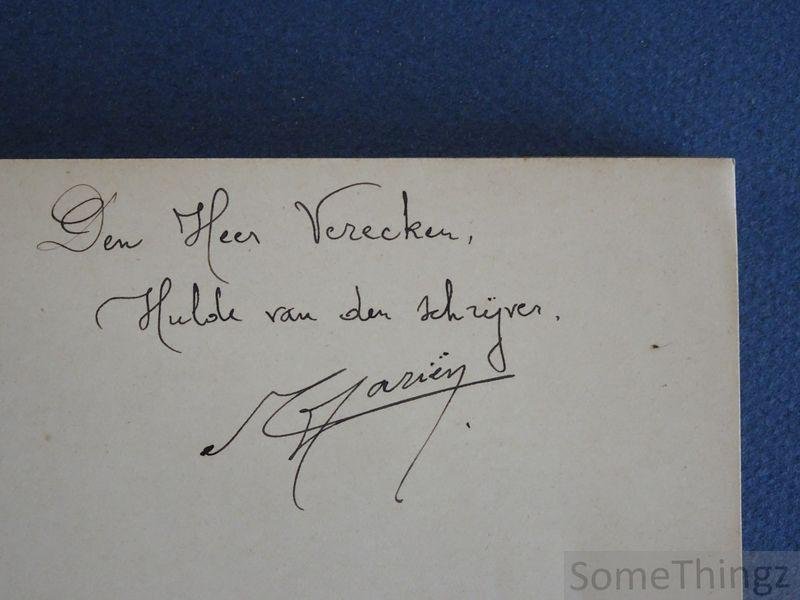 Den Heer Verecken,
Hulde van den schrijver.
Mariën
SomeThingz